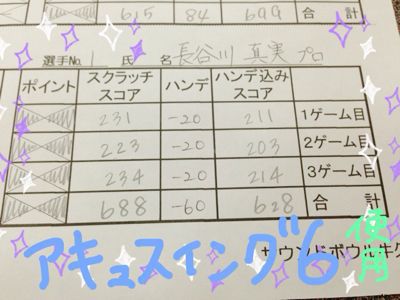 615 84 699 合計
選手No. 1 氏名 長谷川 真実 プロ
ポイント スクラッチスコア ハンデ ハンデ込みスコア
231 -20 211 1ゲーム目
223 -20 203 2ゲーム目
234 -20 214 3ゲーム目
688 -60 628 合計
アキュスイング6 使用
サウンドボウルキク